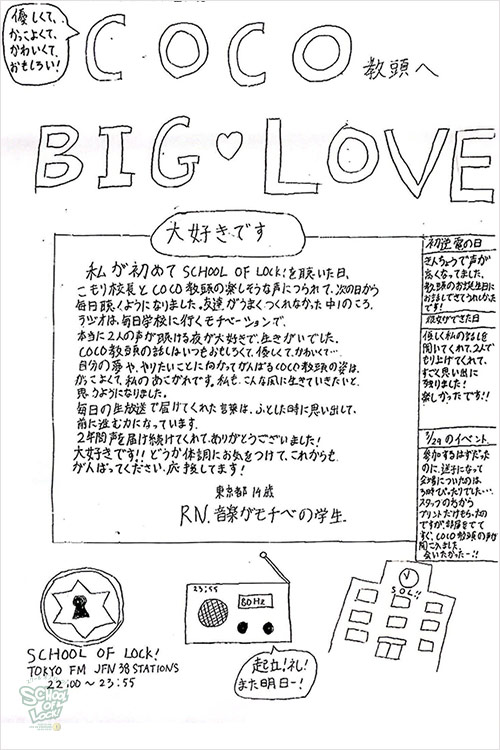 優しくて、
かっこよくて、
かわいくて、
おもしろい!
COCO 教頭へ
BIG♡LOVE
大好きです
私が初めてSCHOOL OF LOCK!を聴いた日、
こもり校長とCOCO教頭の楽しそうな声につられて、次の日から
毎日聴くようになりました。友達がうまくつくれなかった中1のころ、
ラジオは、毎日学校に行くモチベーションで、
本当に2人の声が聴ける夜が大好きで、生きがいでした。
COCO教頭の話しはいつもおもしろくて、優しくて、かわいくて…
自分の夢や、やりたいことに向かってがんばるCOCO教頭の姿は、
かっこよくて、私のあこがれです。私も、こんな風に生きていきたいと、
思うようになりました。
毎日の生放送で届けてくれた言葉は、ふとした時に思い出して、
前に進む力になっています。
2年間声を届け続けてくれて、ありがとうございました!
大好きです!!どうか体調にお気をつけて、これからも
がんばってください。応援してます!
東京都 14歳
RN.音楽がモチベの学生
初逆電の日
きんちょうで声が
高くなってました。
教頭のお誕生日に
お話しできてうれしかった
です!
彼女ができた日
優しく私の話しを
聞いてくれて、2人で
もり上げてくれて、
すごく思い出に
残りました!
楽しかったです!!
3/29のイベント
参加するはずだった
のに、迷子になって
会場についたのは
3時ぴったりでした…。
スタッフの方から
プリントだけもらったの
ですが、部屋をでて
すぐ、COCO教頭の声が
聞こえました。
会いたかったー!!
SCHOOL OF LOCK!
TOKYO FM JFN 38 STATIONS
22:00〜23:55
23:55
80Hz
起立!礼!
また明日ー!
SOL!!
SCHOOL OF LOCK!